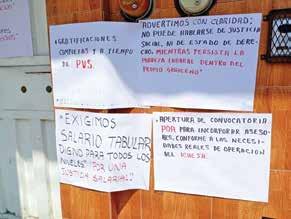 *GRATIFICACIONES
COMPLETAS Y A TIEMPO
DE PVS.
ADVERTIMOS CON CLARIDAD:
NO PUEDE HABLARSE DE JUSTICIA
SOCIAL, NI DE ESTADO DE DERE-
CHO, MIENTRAS PERSISTA LA
POBREZA LABORAL DENTRO DEL
PROPIO GOBIERNO.
"EXIGIMOS
SALARIO TABULAR
DIGNO PARA TODOS LOS
NIVELES" POR UNA
JUSTICIA SALARIAL"
*APERTURA DE CONVOCATORIA
PDA PARA INCORPORAR ASESO-
RES, CONFORME A LAS NECESI-
DADES REALES DE OPERACIÓN
DEL ICHEJA.